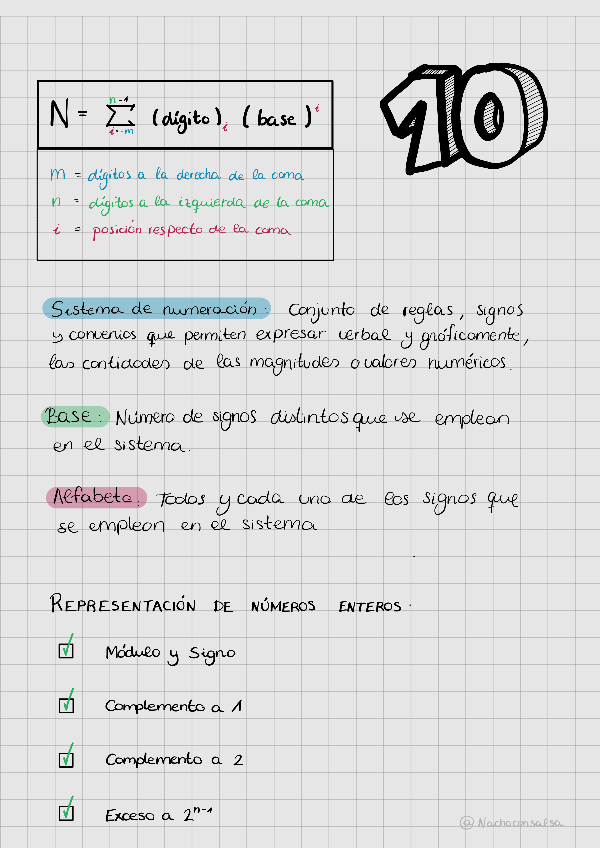 10
n-1
N = ∑ (dígito)i (base)^i
i=-m
m = dígitos a la derecha de la coma
n = dígitos a la izquierda de la coma
i = posición respecto de la coma
Sistema de numeración: Conjunto de reglas, signos
y convenios que permiten expresar verbal y gráficamente,
las cantidades de las magnitudes o valores numéricos.
Base: Número de signos distintos que se emplean
en el sistema.
Alfabeto: Todos y cada uno de los signos que
se emplean en el sistema
REPRESENTACIÓN DE NÚMEROS ENTEROS.
☑ Módulo y Signo
☑ Complemento a 1
☑ Complemento a 2
☑ Exceso a 2^n-1
@Nachoconsalsa